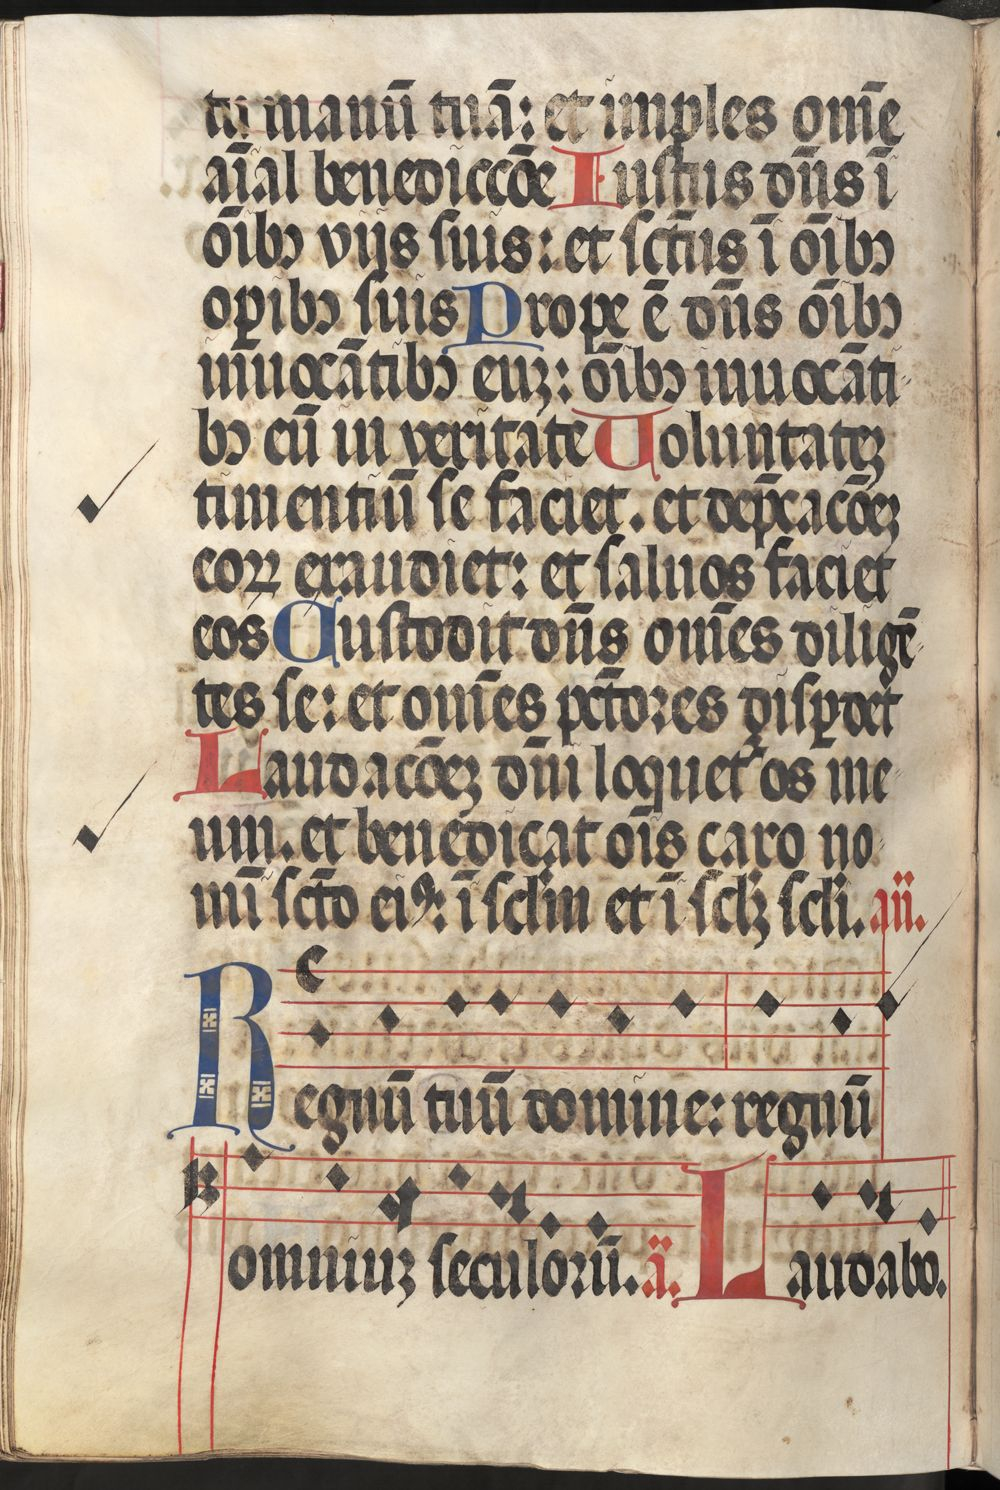 tu manū tuā: et imples om̄e
aīal benediccōe Iustus dn̄s ī
oībꝫ vijs suis: et sc̄tus ī oībꝫ
oꝑibꝫ suis Prope ē dn̄s oībꝫ
inuocātibꝫ euꝫ: oībꝫ inuocāti
bꝫ eū in veritate Uoluntateꝫ
timentiū se faciet. et dep̄cacōeꝫ
eoꝝ exaudiet: et saluos faciet
eos Custodit dn̄s om̄es diligē
tes se: et om̄es pc̄tores disꝑdet
Laudacōeꝫ dn̄i loquet᷑ os me
um. et benedicat oīs caro no
mī sc̄to eiꝰ: ī sclm et ī sclꝫ scli. añ.
Regnū tuū domine: regnū
omniuꝫ seculorū. a. Laudabo.